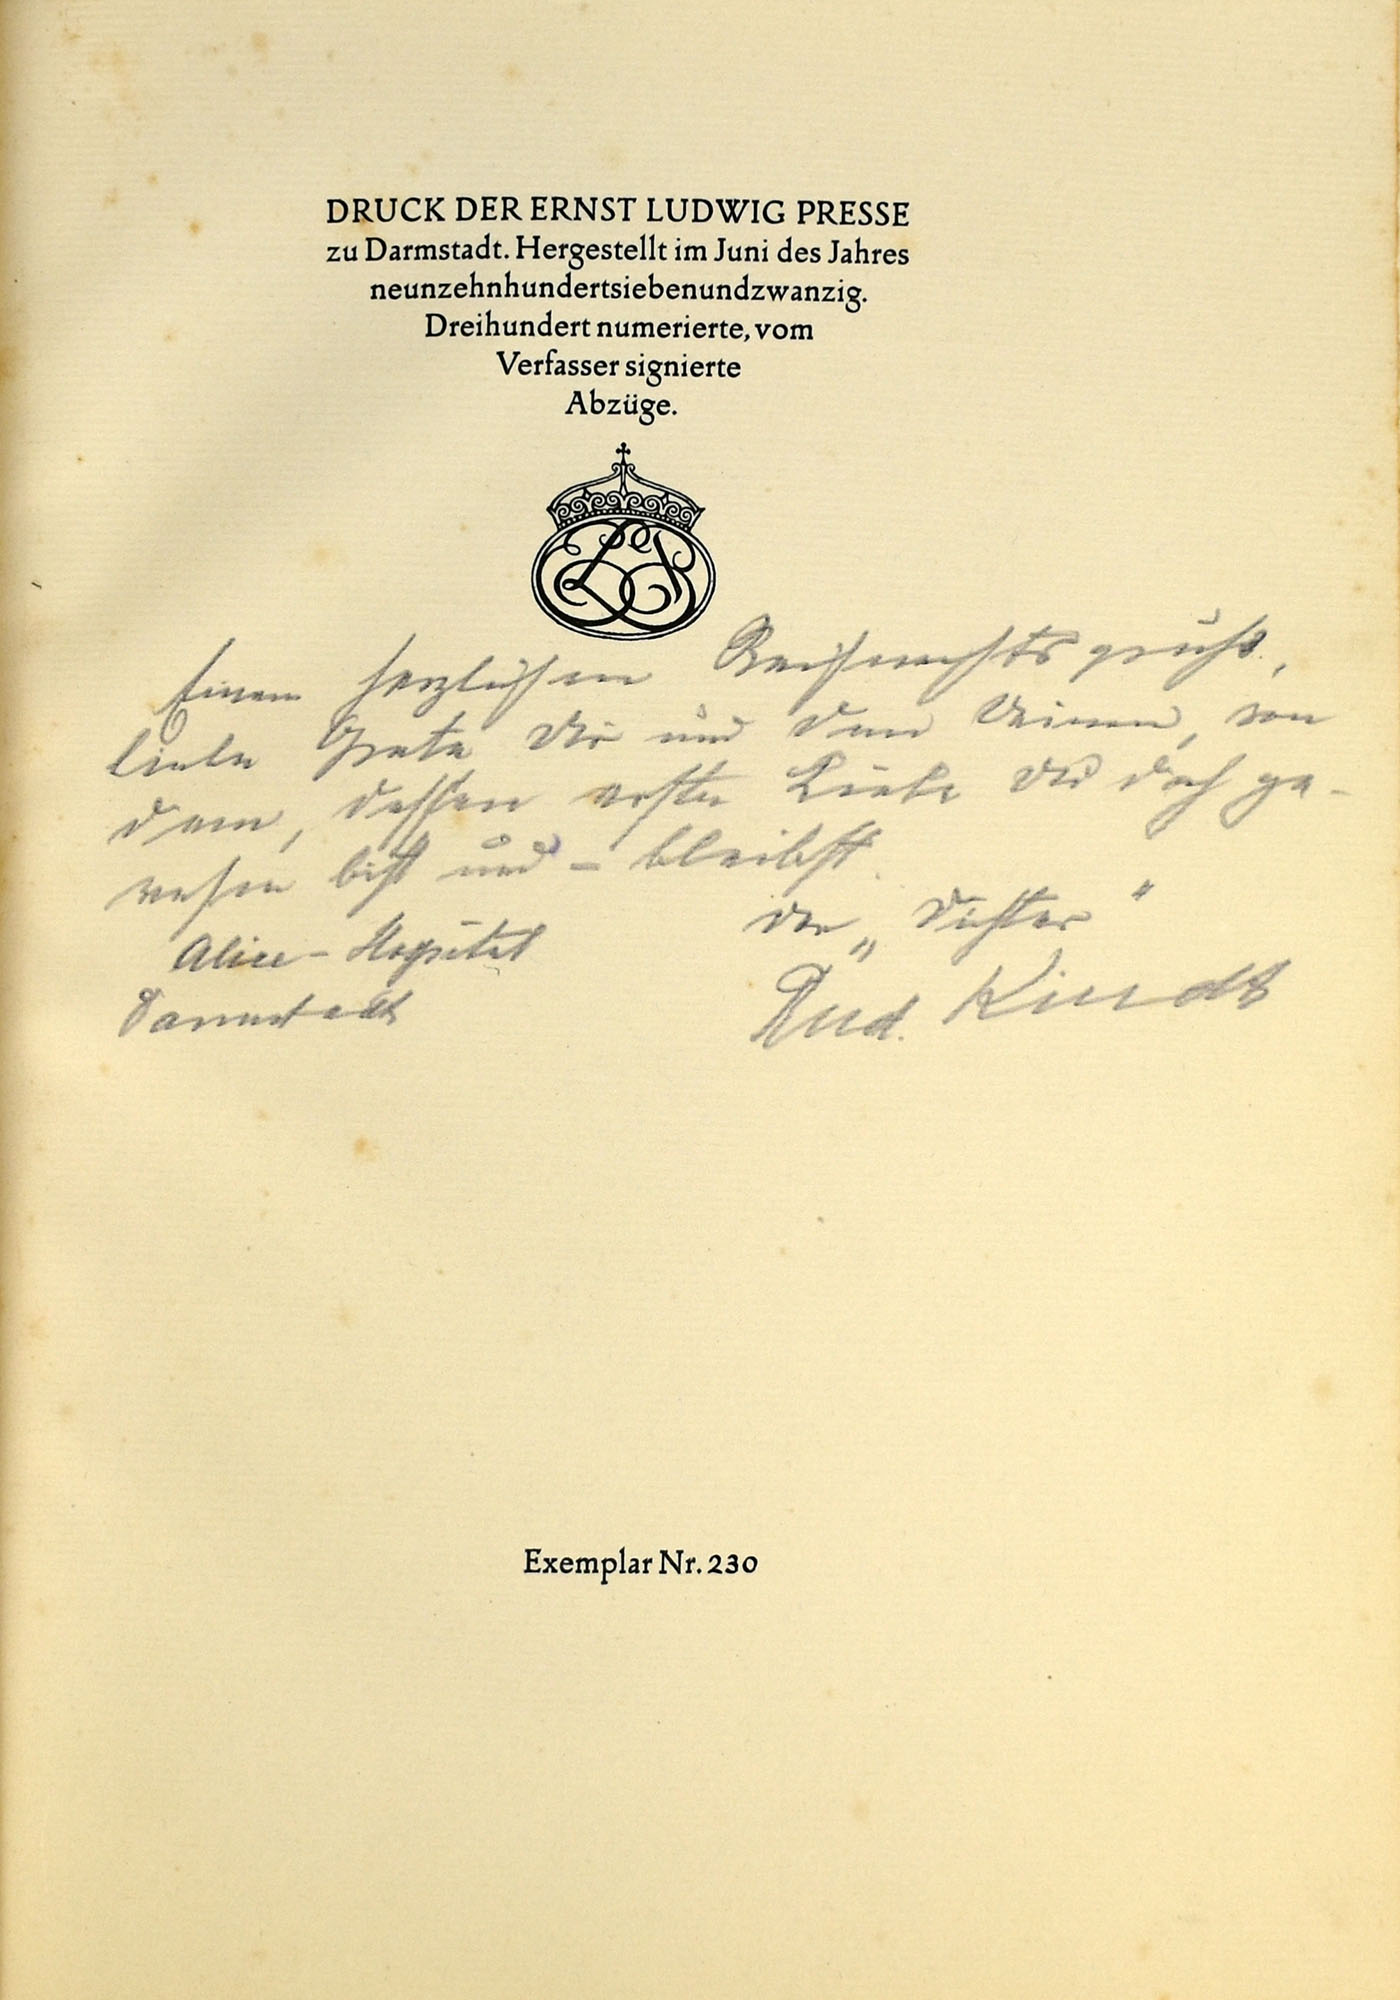 DRUCK DER ERNST LUDWIG PRESSE
zu Darmstadt. Hergestellt im Juni des Jahres
neunzehnhundertsiebenundzwanzig.
Dreihundert numerierte, vom
Verfasser signierte
Abzüge.
Einen herzlichen Weihnachtsgruß,
liebe Grete Dir und den Deinen, von
dem, dessen erste Liebe Du doch ge-
wesen bist und – bleibst.
der „Dichter"
Alice-Hospital
Rud. Kindt
Darmstadt
Exemplar Nr. 230